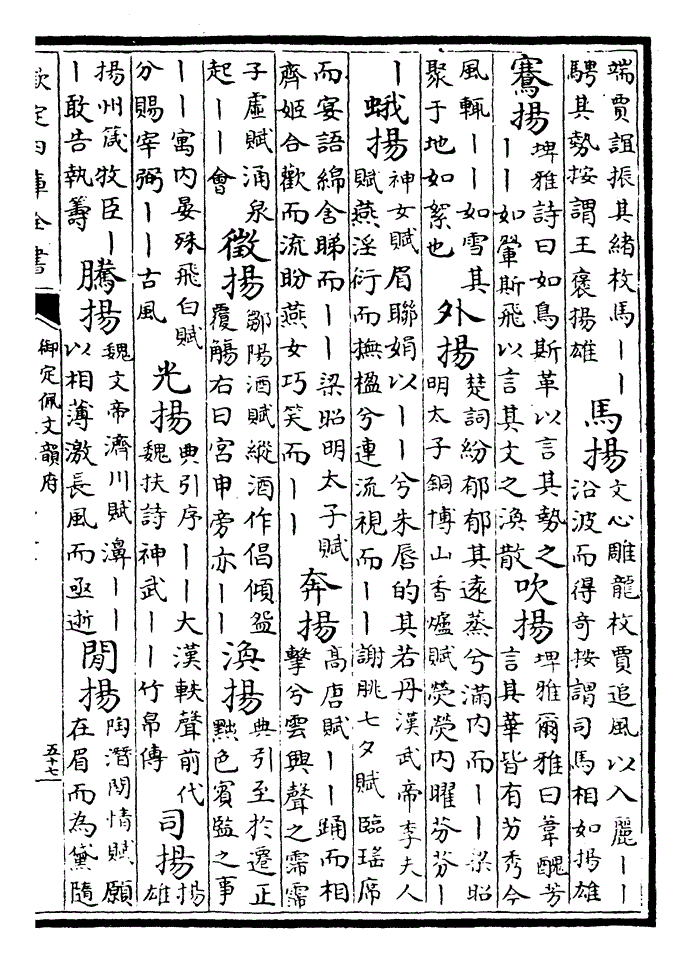 端賈誼振其緒枚馬丨丨
騁其勢按謂王褒揚雄
馬揚
文心雕龍枚賈追風以入麗丨丨
沿波而得奇按謂司馬相如揚雄
騫揚
埤雅詩曰如鳥斯革以言其勢之
丨丨如翬斯飛以言其文之渙散
吹揚
埤雅爾雅曰葦醜芳
言其華皆有芳秀今
風輒丨丨如雪其
聚于地如絮也
外揚
楚詞紛郁郁其遠蒸兮滿内而丨丨梁昭
明太子銅博山香爐賦熒熒内曜芬芬丨
丨
蛾揚
神女賦眉聯娟以丨丨兮朱唇的其若丹漢武帝李夫人
賦燕淫衍而撫楹兮連流視而丨丨謝朓七夕賦臨瑶席
而宴語綿含睇而丨丨梁昭明太子賦
齊姬合歡而流盼燕女巧笑而丨丨
奔揚
高唐賦丨丨踊而相
擊兮雲興聲之霈霈
子虛賦涌泉
起丨丨會
徵揚
鄒陽酒賦縱酒作倡傾盌
覆觴右曰宮申旁亦丨丨
渙揚
典引至於遷正
黜色賓監之事
丨丨寓内晏殊飛白賦
分賜宰弼丨丨古風
光揚
典引序丨丨大漢軼聲前代
魏扶詩神武丨丨竹帛傳
司揚
揚
雄
揚州箴牧臣丨
丨敢告執籌
騰揚
魏文帝濟川賦濞丨丨
以相薄激長風而亟逝
閒揚
陶潛閒情賦願
在眉而為黛隨
欽定四庫全書
御定佩文韻府
五十七